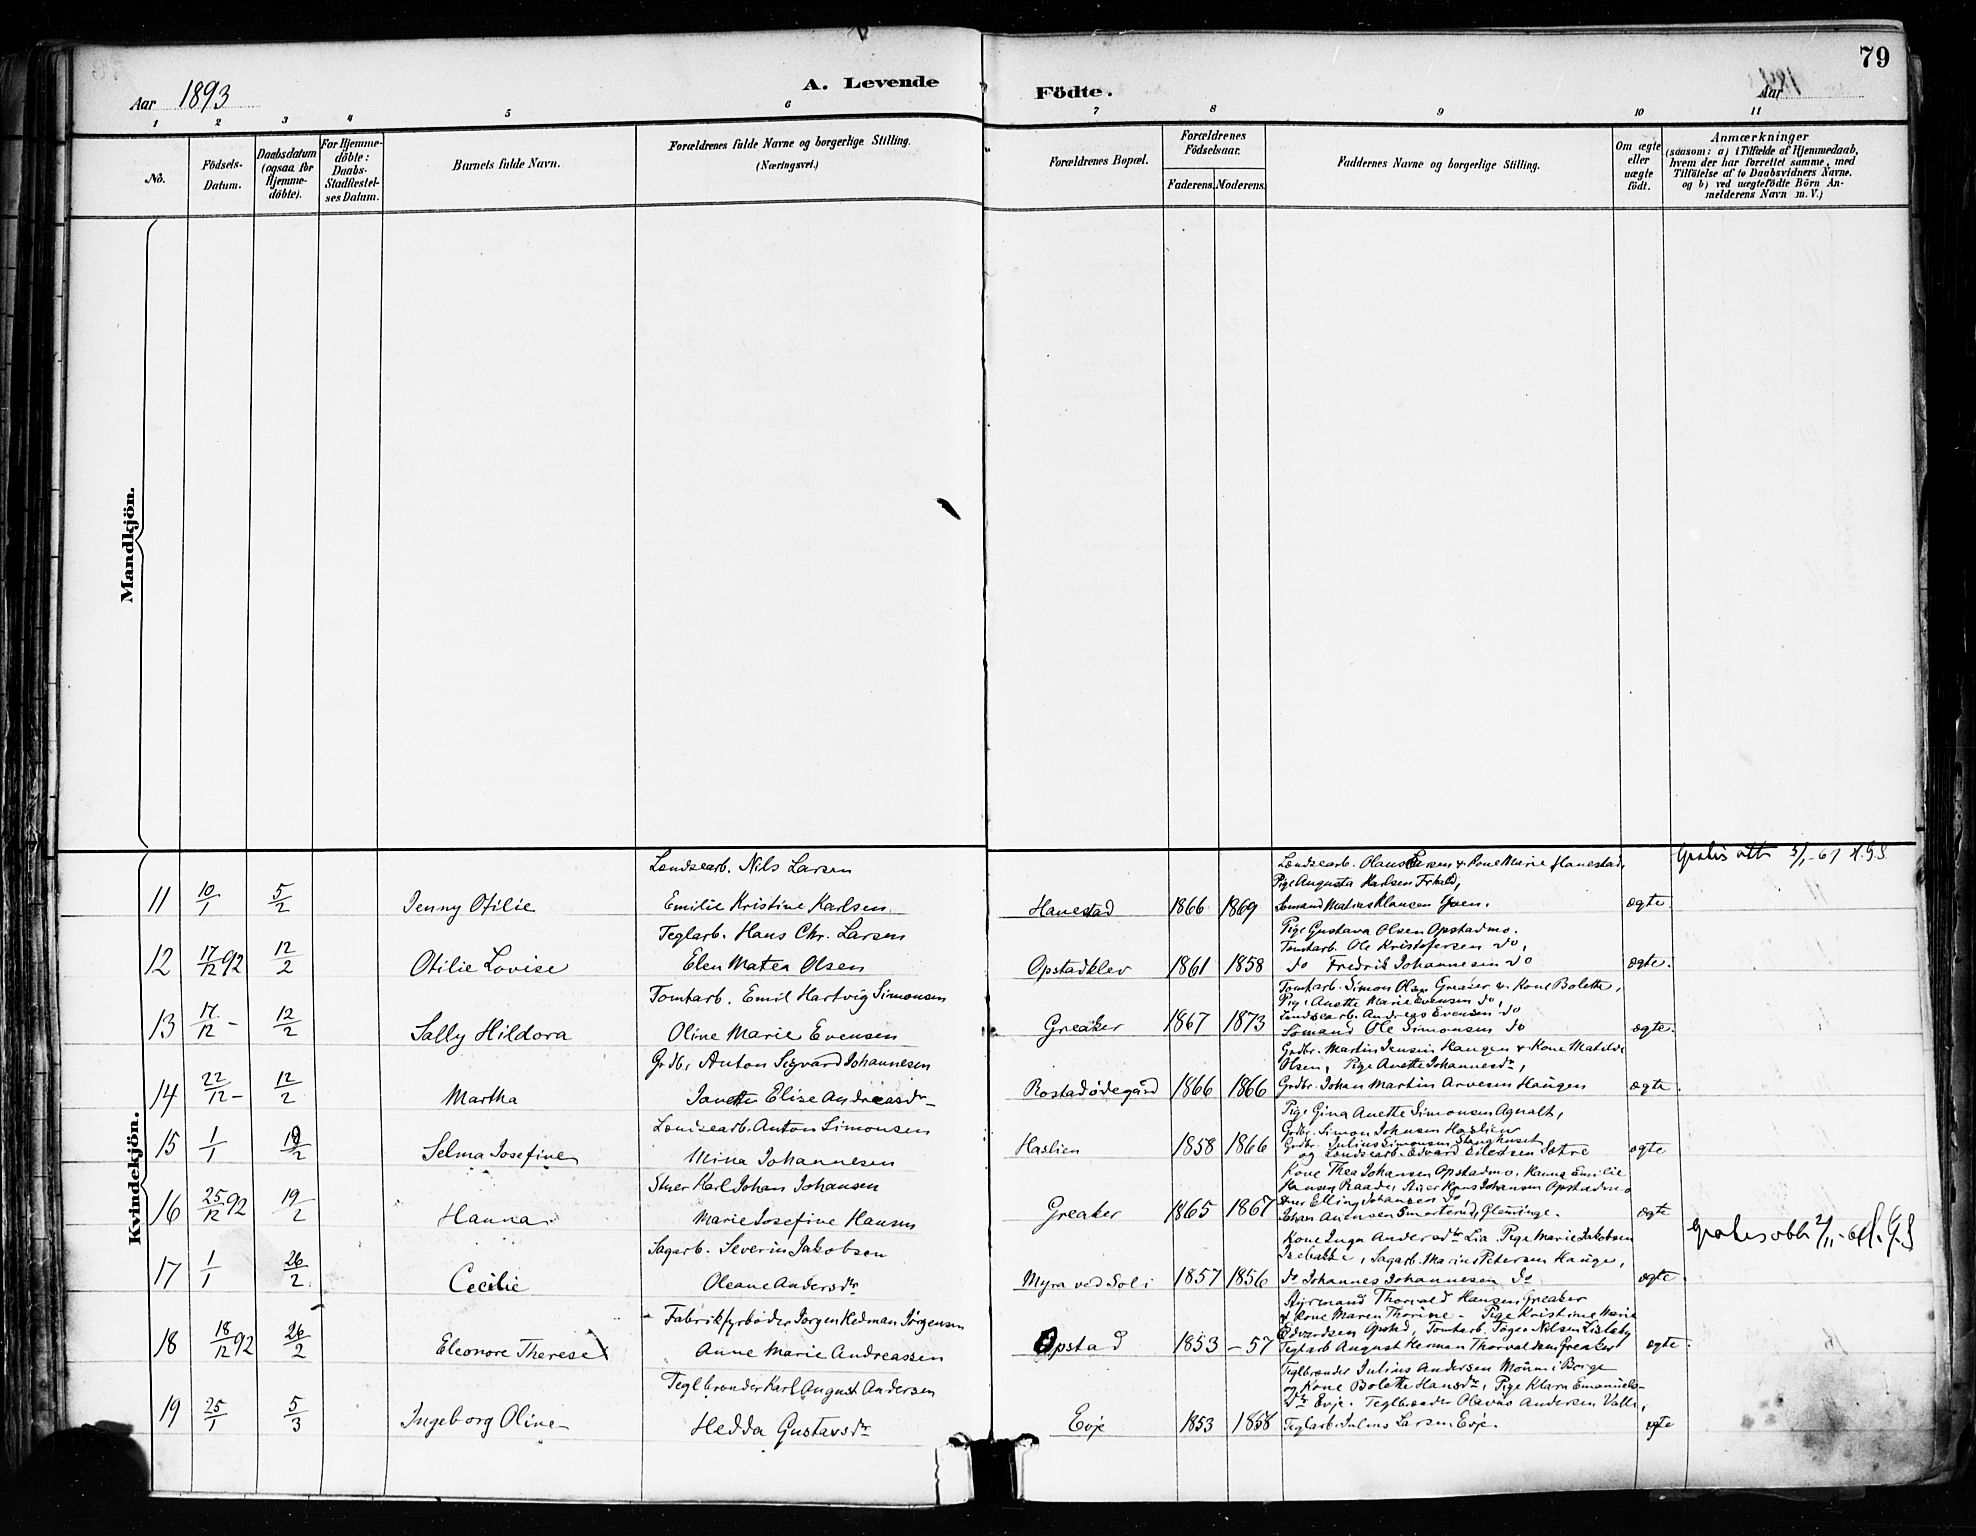 79
Aar 1893
A. Levende Födte.
Aar
1 2 3 4 5 6 7 8 9 10 11
No.
Födsels-Datum.
Daabsdatum (ogsaa for Hjemme-döbte).
For Hjemme-döbte: Daabs-Stadfæstel-ses Datum.
Barnets fulde Navn.
Forældrenes fulde Navne og borgerlige Stilling. (Næringsvei.)
Forældrenes Bopæl.
Forældrenes Födselsaar.
Faderens. Moderens.
Faddernes Navne og borgerlige Stilling.
Om ægte eller uægte født.
Anmærkninger
(saasom: a) i Tilfælde af Hjemmedaab, hvem der har forrettet samme, med Tilföielse af to Daabsvidners Navne, og b) ved uægtefödte Börn An-melderens Navn m. V.)
Mandkjön.
Kvindekjön.
11 10/1 5/2 Jenny Otilie
Landsearb. Nils Larsen
Emilie Kristine Karlsen
Hanestad 1866 1869
Landsearb. Olaus Larsen & Kone Marie Hanestad,
Pige Augusta Karlsen
Sømand Matias Klausen
ægte
12 17/12 92 12/2 Otilie Lovise
Teglarb. Hans Chr. Larsen
Elen Matea Olsen
Opstadklev 1861 1858
Pige Gustava Olsen Opstadmo.
Tomtarb. Ole Kristofersen do,
do Fredrik Johannesen do
ægte.
13 17/12 - 12/2 Sally Hildora
Tomtarb. Emil Hartvig Simonsen
Oline Marie Evensen
Greaker 1867 1873
Tomtarb. Simon Olsen Greaker & Kone Bolette,
Pige Anette Marie Evensen do,
Landsearb. Andreas Evensen do
Sømand Ole Simonsen do
ægte.
14 22/12 - 12/2 Martha
Grdbr. Anton Sigvard Johannesen
Janette Elise Andreasdr
Rostadødegård 1866 1866
Grdbr. Martin Jensen Haugen & Kone Matilde
Olsen, Pige Anette Johannesdr,
Grdbr. Johan Martin Arvesen Haugen
ægte.
15 1/1 Selma Josefine
Landsearb. Anton Simonsen
Mina Johannesen
Haslien 1858 1866
Pige Gina Anette Simonsen Agnalt,
Grdbr. Simon Johnsen Haslien
Grdbr. Julius Simonsen Stanghuset
og Landsearb. Edvard Eilertsen Sætre
ægte
16 25/12 92 19/2 Hanna
Stuer Karl Johan Johansen
Marie Josefine Hansen
Greaker 1865 1867
Kone Thea Johansen Opstadmo. Hanna Emilie
Hansen Raade, Stuer Hans Johansen Opstadmo
Stuer Elling Johansen do
Johan Glemminge.
ægte
17 1/1 26/2 Cecilie
Sagarb. Severin Jakobsen
Oleane Andersdr
Myra ved Sol i 1857 1856
Kone Inga Andersdr Lia. Pige Marie Jakobsen
Isebakke, Sagarb. Marius Petersen Hauge,
do Johannes Johannesen do
ægte.
18 18/12 92 26/2 Eleonore Therese
Fabrikfyrbøder Jørgen Hedman Jørgensen
Anne Marie Andreassen
Opstad 1853 - 57
Styrmand Thorvald Hansen Greaker
& Kone Maren Thorine - Pige Kristine Marie
Edvardsen Opstad, Tomtarb. Tøger Nilsen Lisleby
Teglarb August Herman Thorvaldsen Greaker
ægte.
19 25/1 5/3 Ingeborg Oline
Teglbrænder Karl August Andersen
Hedda Gustavsdr
Evje 1853 1858
Teglbrænder Julius Andersen Moum i Borge
og Kone Bolette Hansdr, Pige Klara Emanuels-
dr Evje. Teglbrænder Olavus Andersen Valle,
Teglarb. Julius Larsen Evje.
ægte